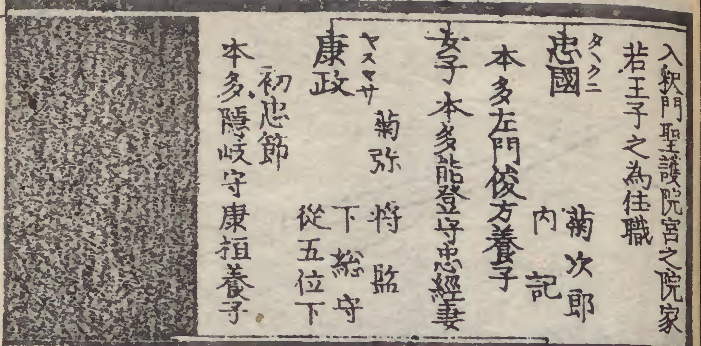 入釈門聖護院宮之院家
若王子之為住職
タヽクニ
忠國
菊次郎
内記
本多左門俊方養子
女子 本多能登守忠經妻
ヤスマサ
康政
菊弥 将監
下総守
従五位下
初忠節
本多隠岐守康桓養子